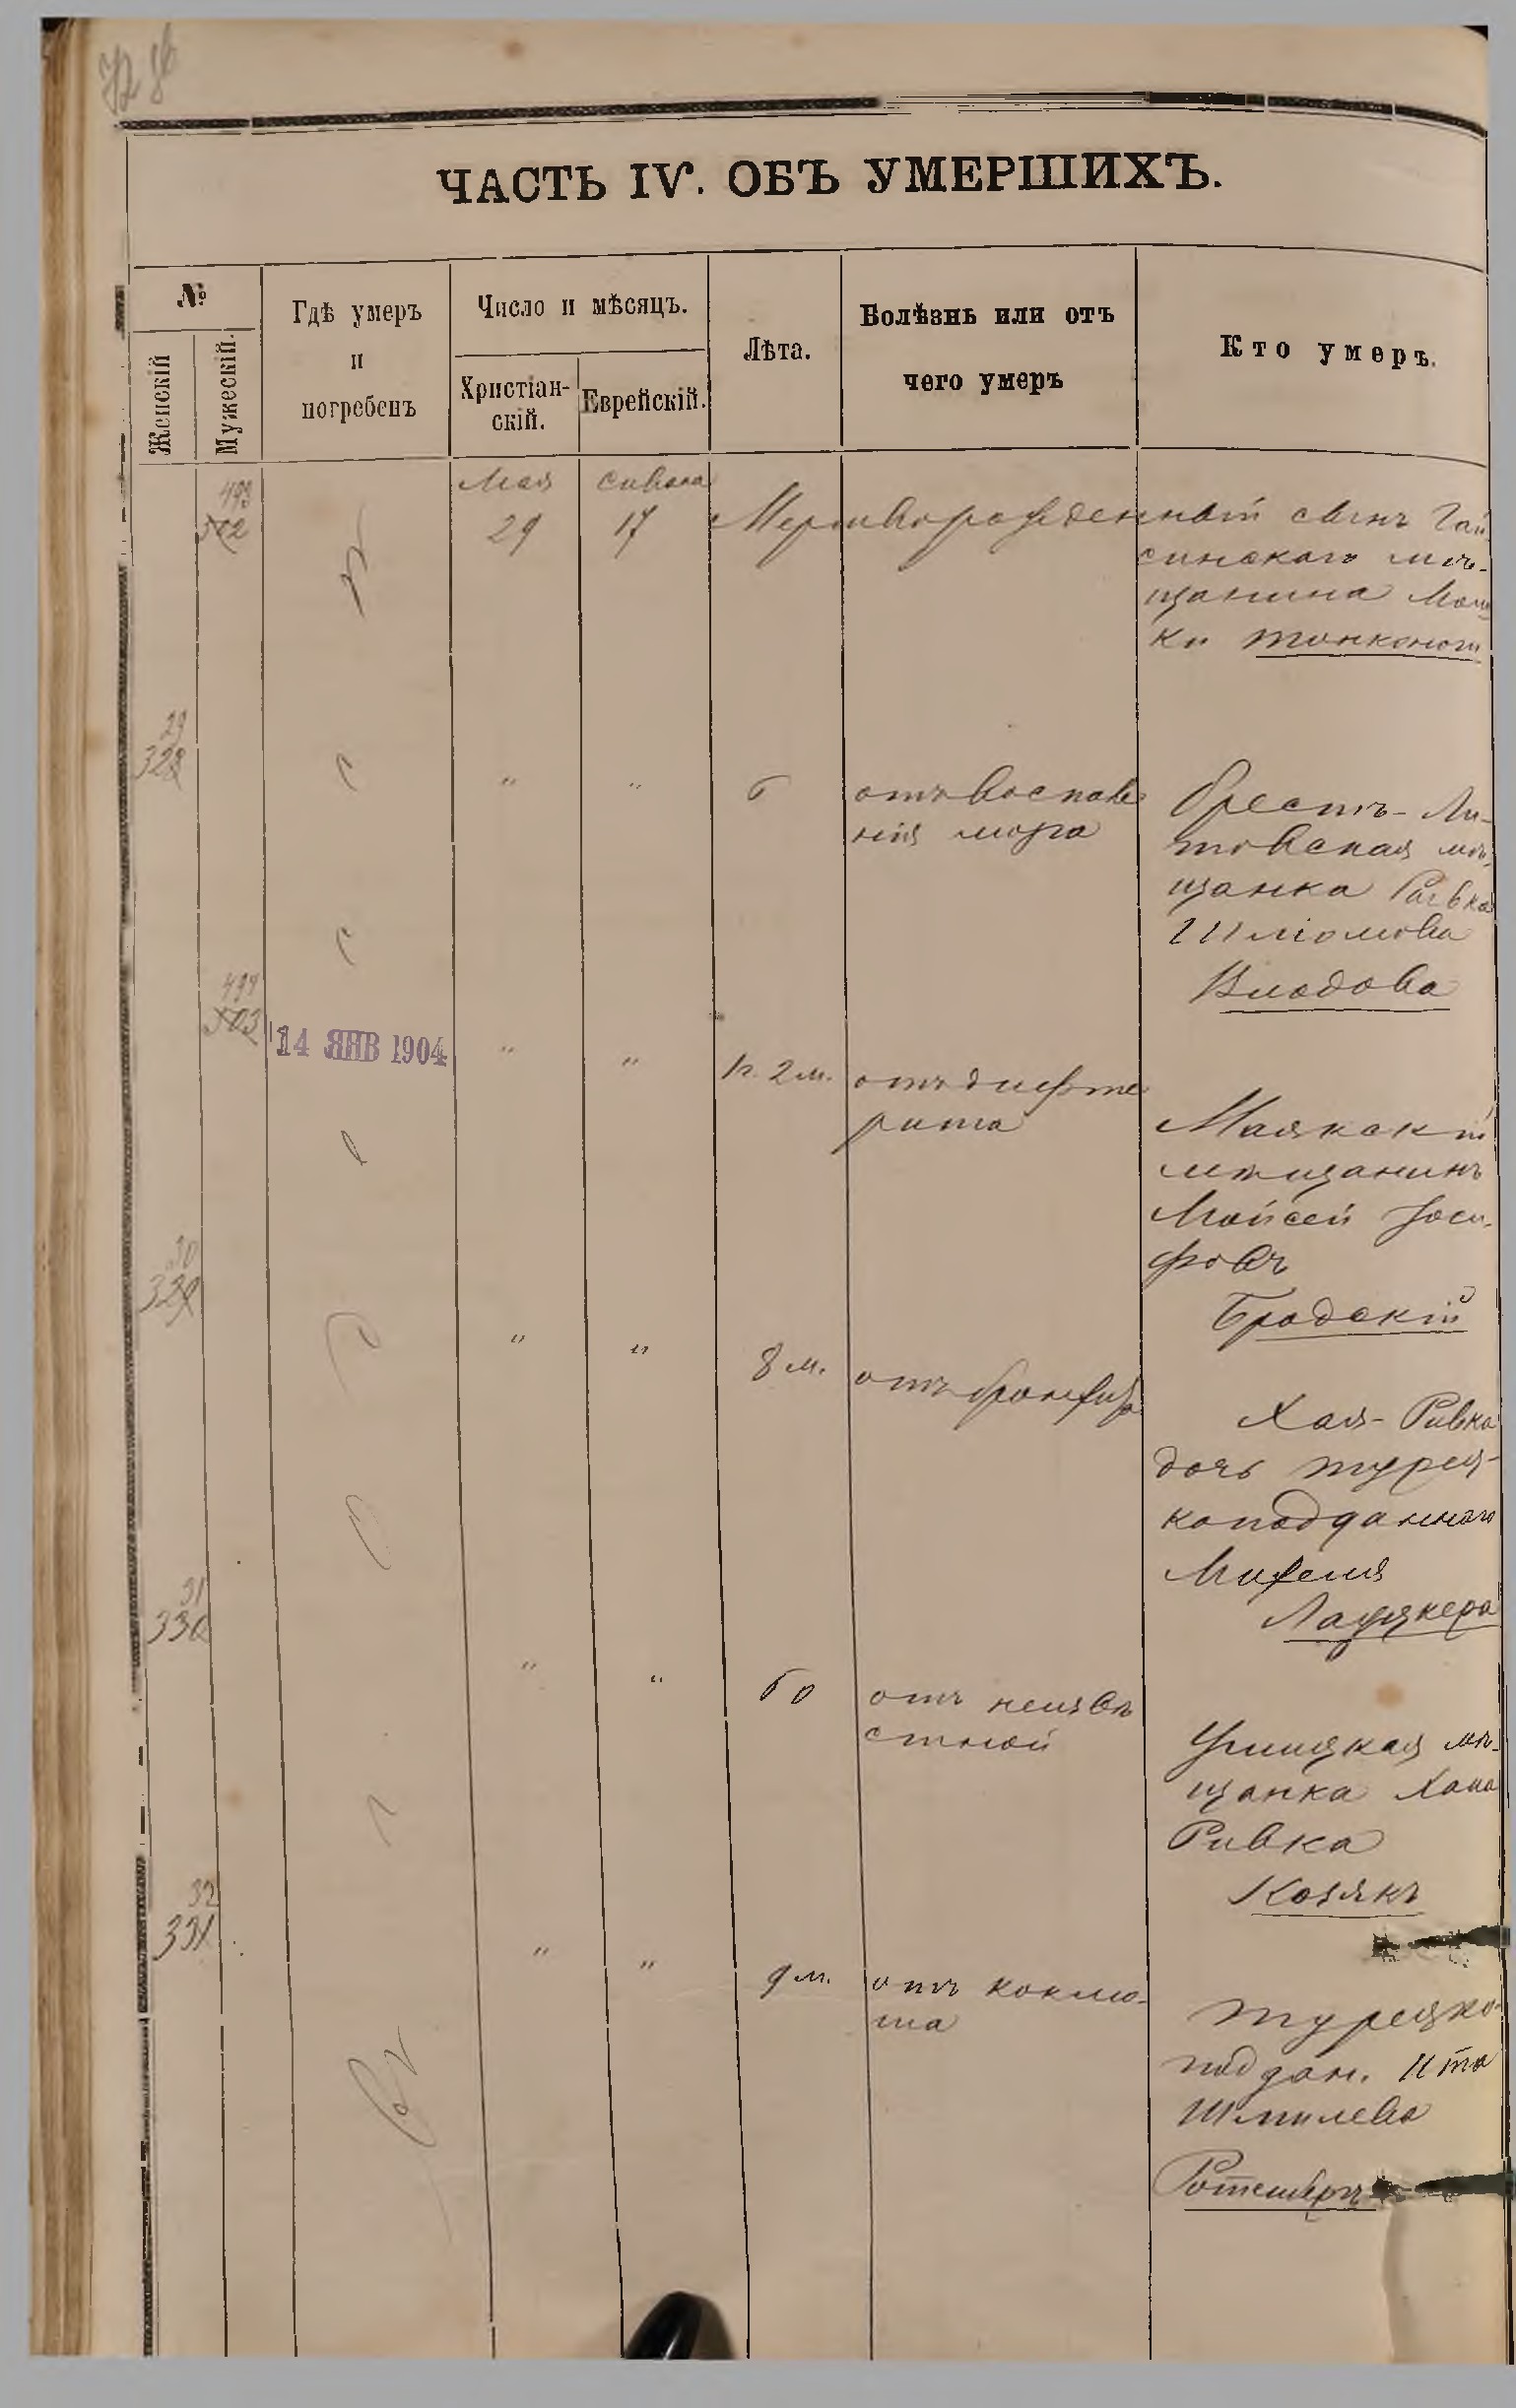 ЧАСТЬ IV. ОБЪ УМЕРШИХЪ.
№
Женскій
Мужескій.
Гдѣ умеръ
и
погребенъ
Число и мѣсяцъ.
Христіан-
скій.
Еврейскій.
Лѣта.
Болѣзнь или отъ
чего умеръ
Кто умеръ.
493
502
Мая
29
Сивана
17
Мертворожденный сынъ Гай-
синскаго мѣ-
щанина Мош
ки Тонконоги
29
328
"
"
отъ воспале
нія мозга
Брестъ-Ли-
товская мѣ-
щанка Ривка
Шліомова
Влодова
494
503
14 ЯНВ 1904
"
"
1 г. 2 м.
отъ дифте
рита
Маякскій
мѣщанинъ
Мойсей Іоси-
фовъ
Бродскій
30
329
"
"
8 м.
отъ бронхита
Хая-Ривка
дочь турец-
коподданнаго
Михеля
31
330
"
"
60
отъ неизвѣ
стной
Ушицкая мѣ-
щанка Хана
Ривка
Козякъ
32
331
"
"
9 м.
отъ коклю-
ша
Турецко-
поддан. Ита
Шмилева
Ротенберъ